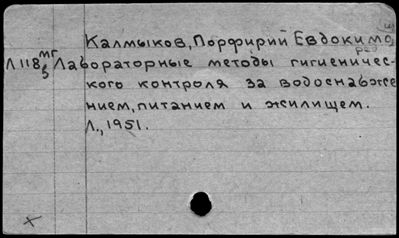 Калмыков, Порфирий Евдокимо
ред
Л118 мг Лабораторные методы гигиеничес-
5 кого контроля за водоснабже
нием, питанием и жилищем.
Л., 1951.
х